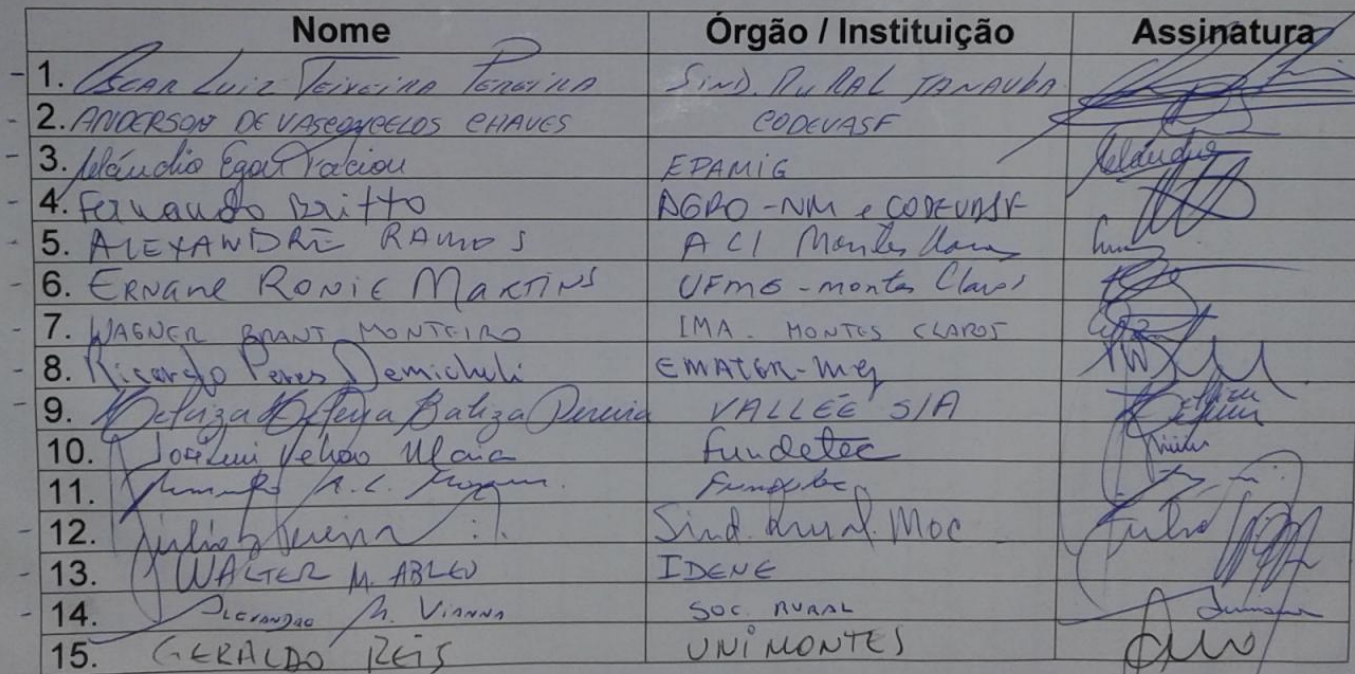 Nome Órgão / Instituição Assinatura
1. Oscar Luiz Teixeira Pereira Sind. Rural Janaúba
2. ANDERSON DE VASCONCELOS CHAVES CODEVASF
3. Cláudio Egon Facion EPAMIG Cláudio
4. Fernando Britto AGRO-NM e CODEVASF
5. ALEXANDRE RAMOS ACI Montes Claros
6. ERNANE RONIE MARTINS UFMG - Montes Claros
7. WAGNER BRANT MONTEIRO IMA. MONTES CLAROS
8. Ricardo Peres Demicheli EMATER-MG
9. Batiza Pereira VALLÉE S/A
10. José Maia Fundetec
11. Fundetec
12. Júlio Pereira Sind. Rural. Moc Julio
13. WALTER M. ABREU IDENE
14. Alexandre M. Vianna SOC. RURAL
15. GERALDO REIS UNIMONTES